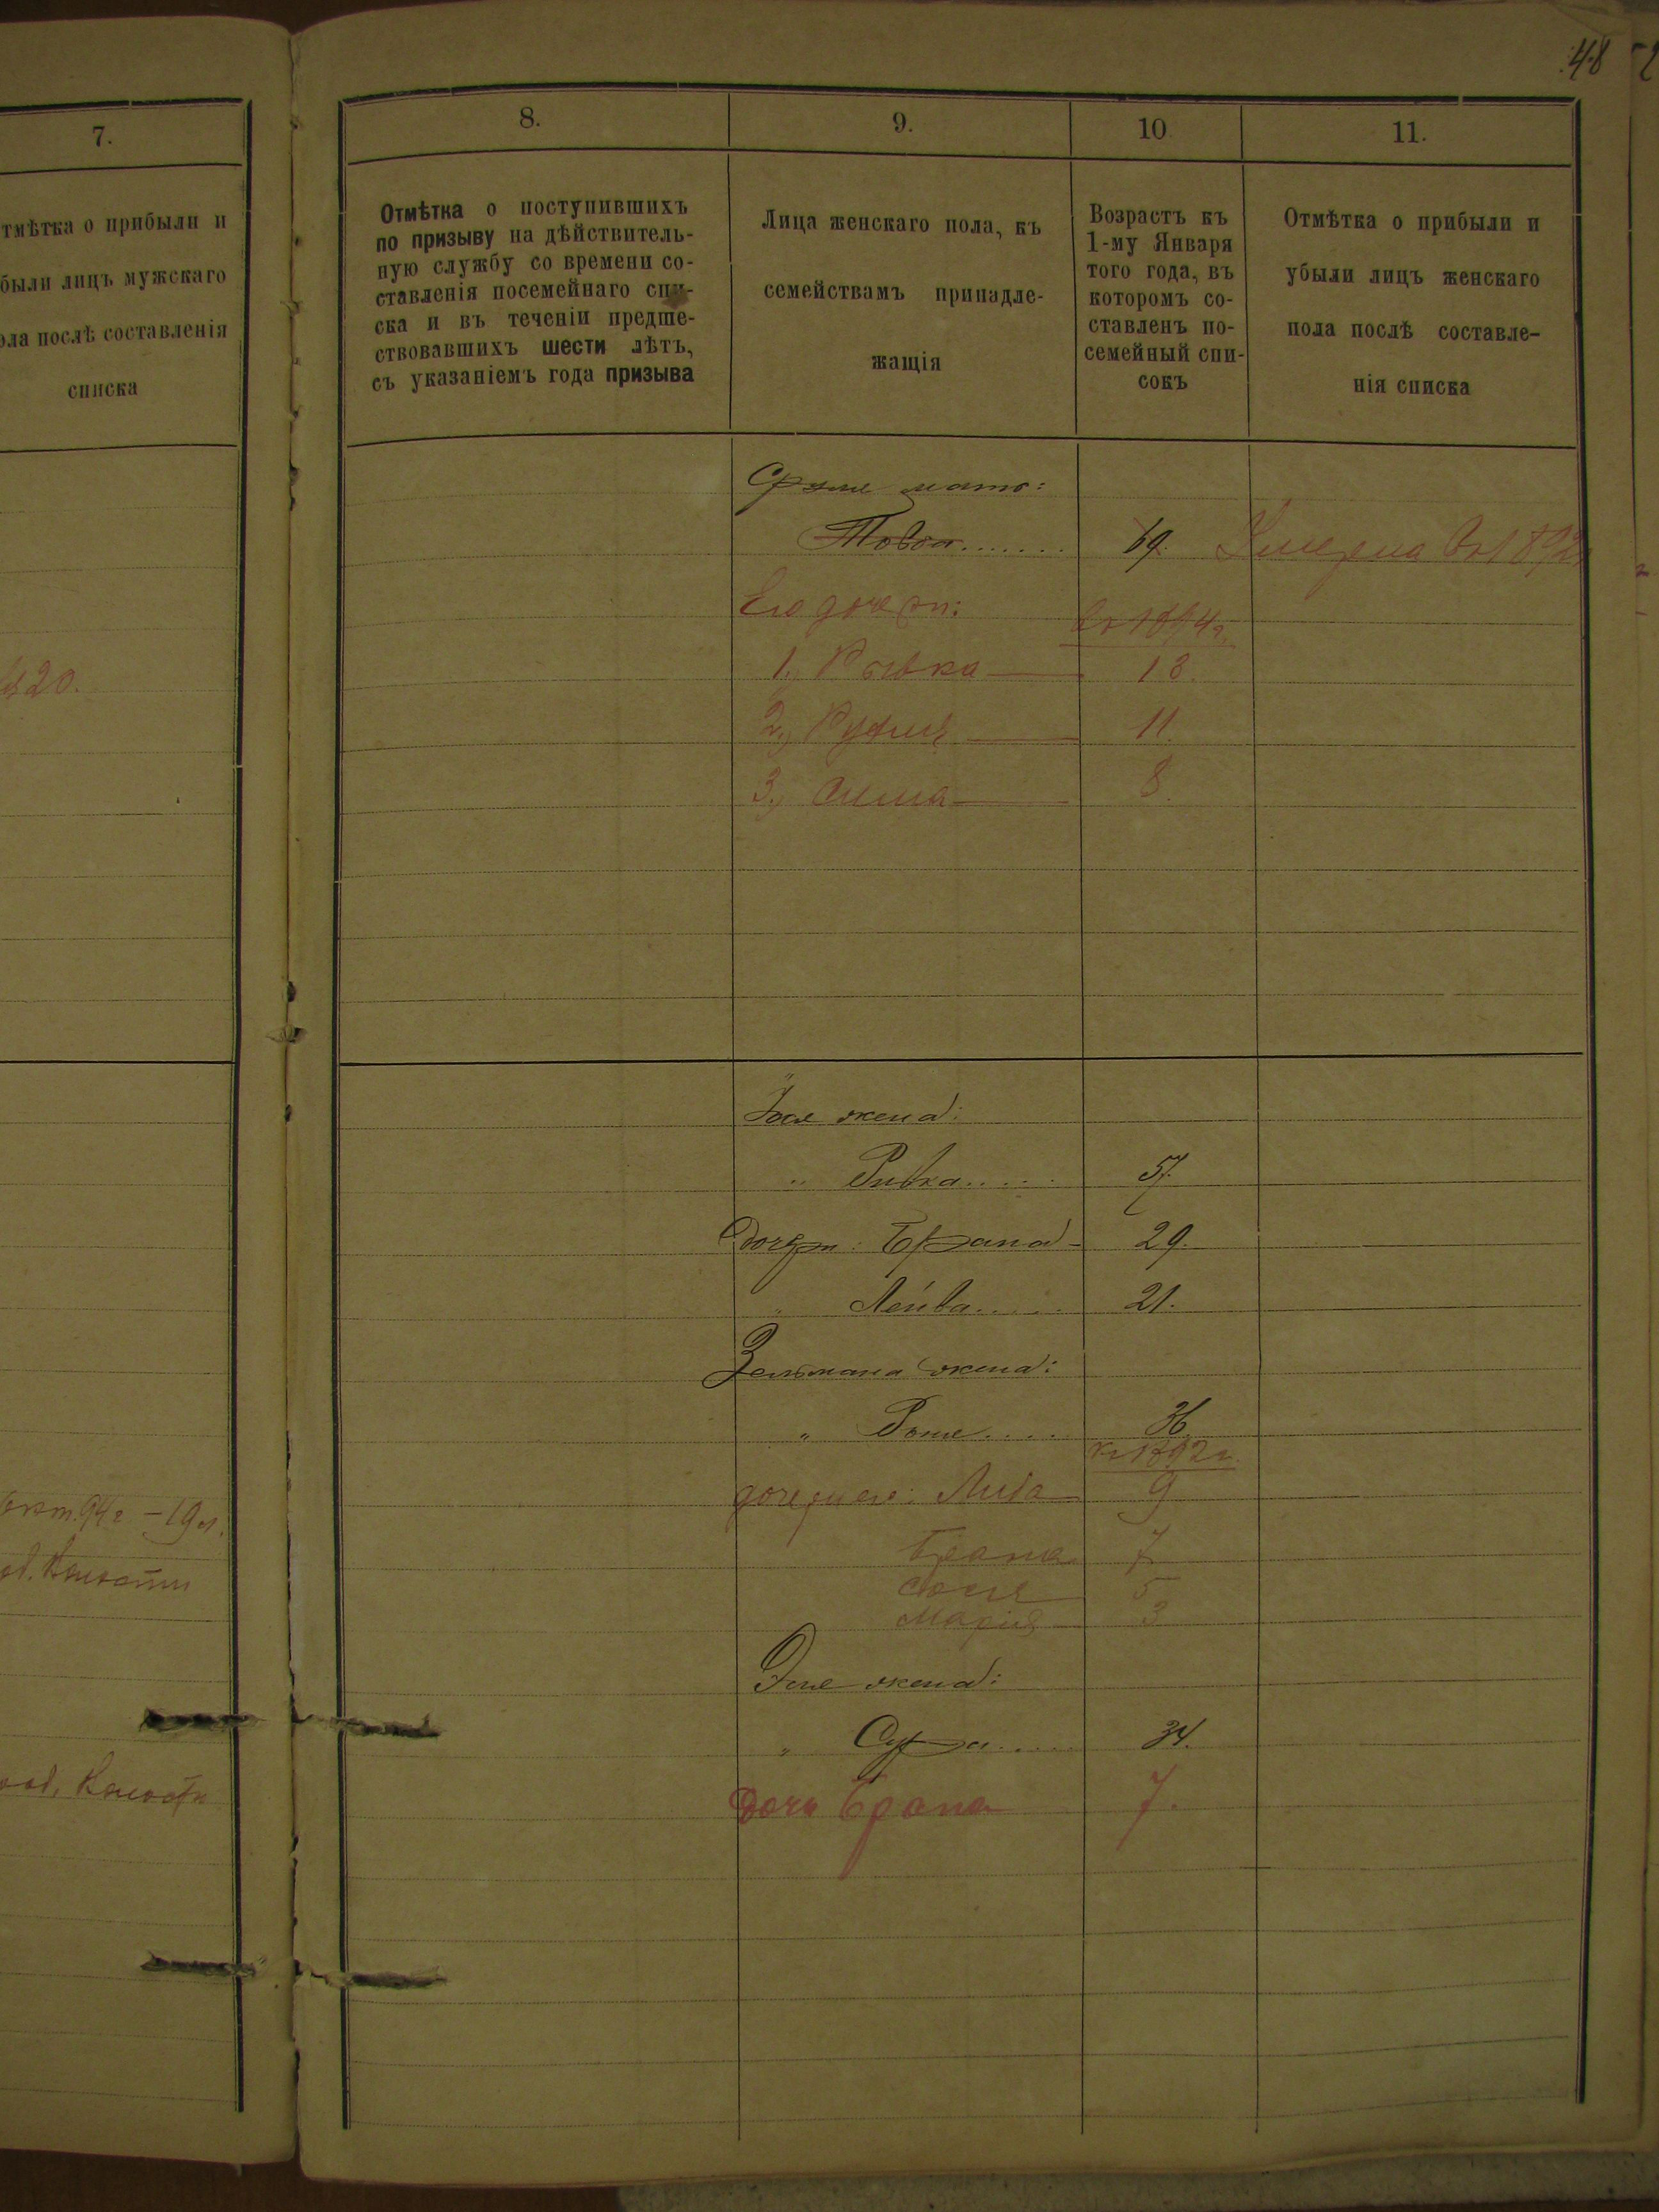 48
7.
тмѣтка о прибыли и
были лицъ мужскаго
ола послѣ составленія
списка
20.
окт. 94 г. – 19 л.
8.
9.
10
11.
Отмѣтка о поступившихъ
по призыву на дѣйствитель-
ную службу со времени со-
ставленія посемейнаго спи-
ска и въ теченіи предше-
ствовавшихъ шести лѣтъ,
съ указаніемъ года призыва
Лица женскаго пола, къ
семействамъ принадле-
жащія
Возрастъ къ
1-му Января
того года, въ
которомъ со-
ставленъ по-
семейный спи-
сокъ
Отмѣтка о прибыли и
убыли лицъ женскаго
пола послѣ составле-
нія списка
мать:
Товба....... 69. Умерла въ 1892
Его дочери: въ 1894 г.
1., Рывка 13.
2., 11.
3., Сима 8.
жена:
" Ривка..... 57.
Дочери: Брана 29.
" Лейва..... 21.
Зельмана жена:
" .... 36.
къ 1892 г.
дочери его: Либа 9
Брана 7
Сося 5
Марія 3
жена:
" Сура..... 34.
Дочь Брана 7.